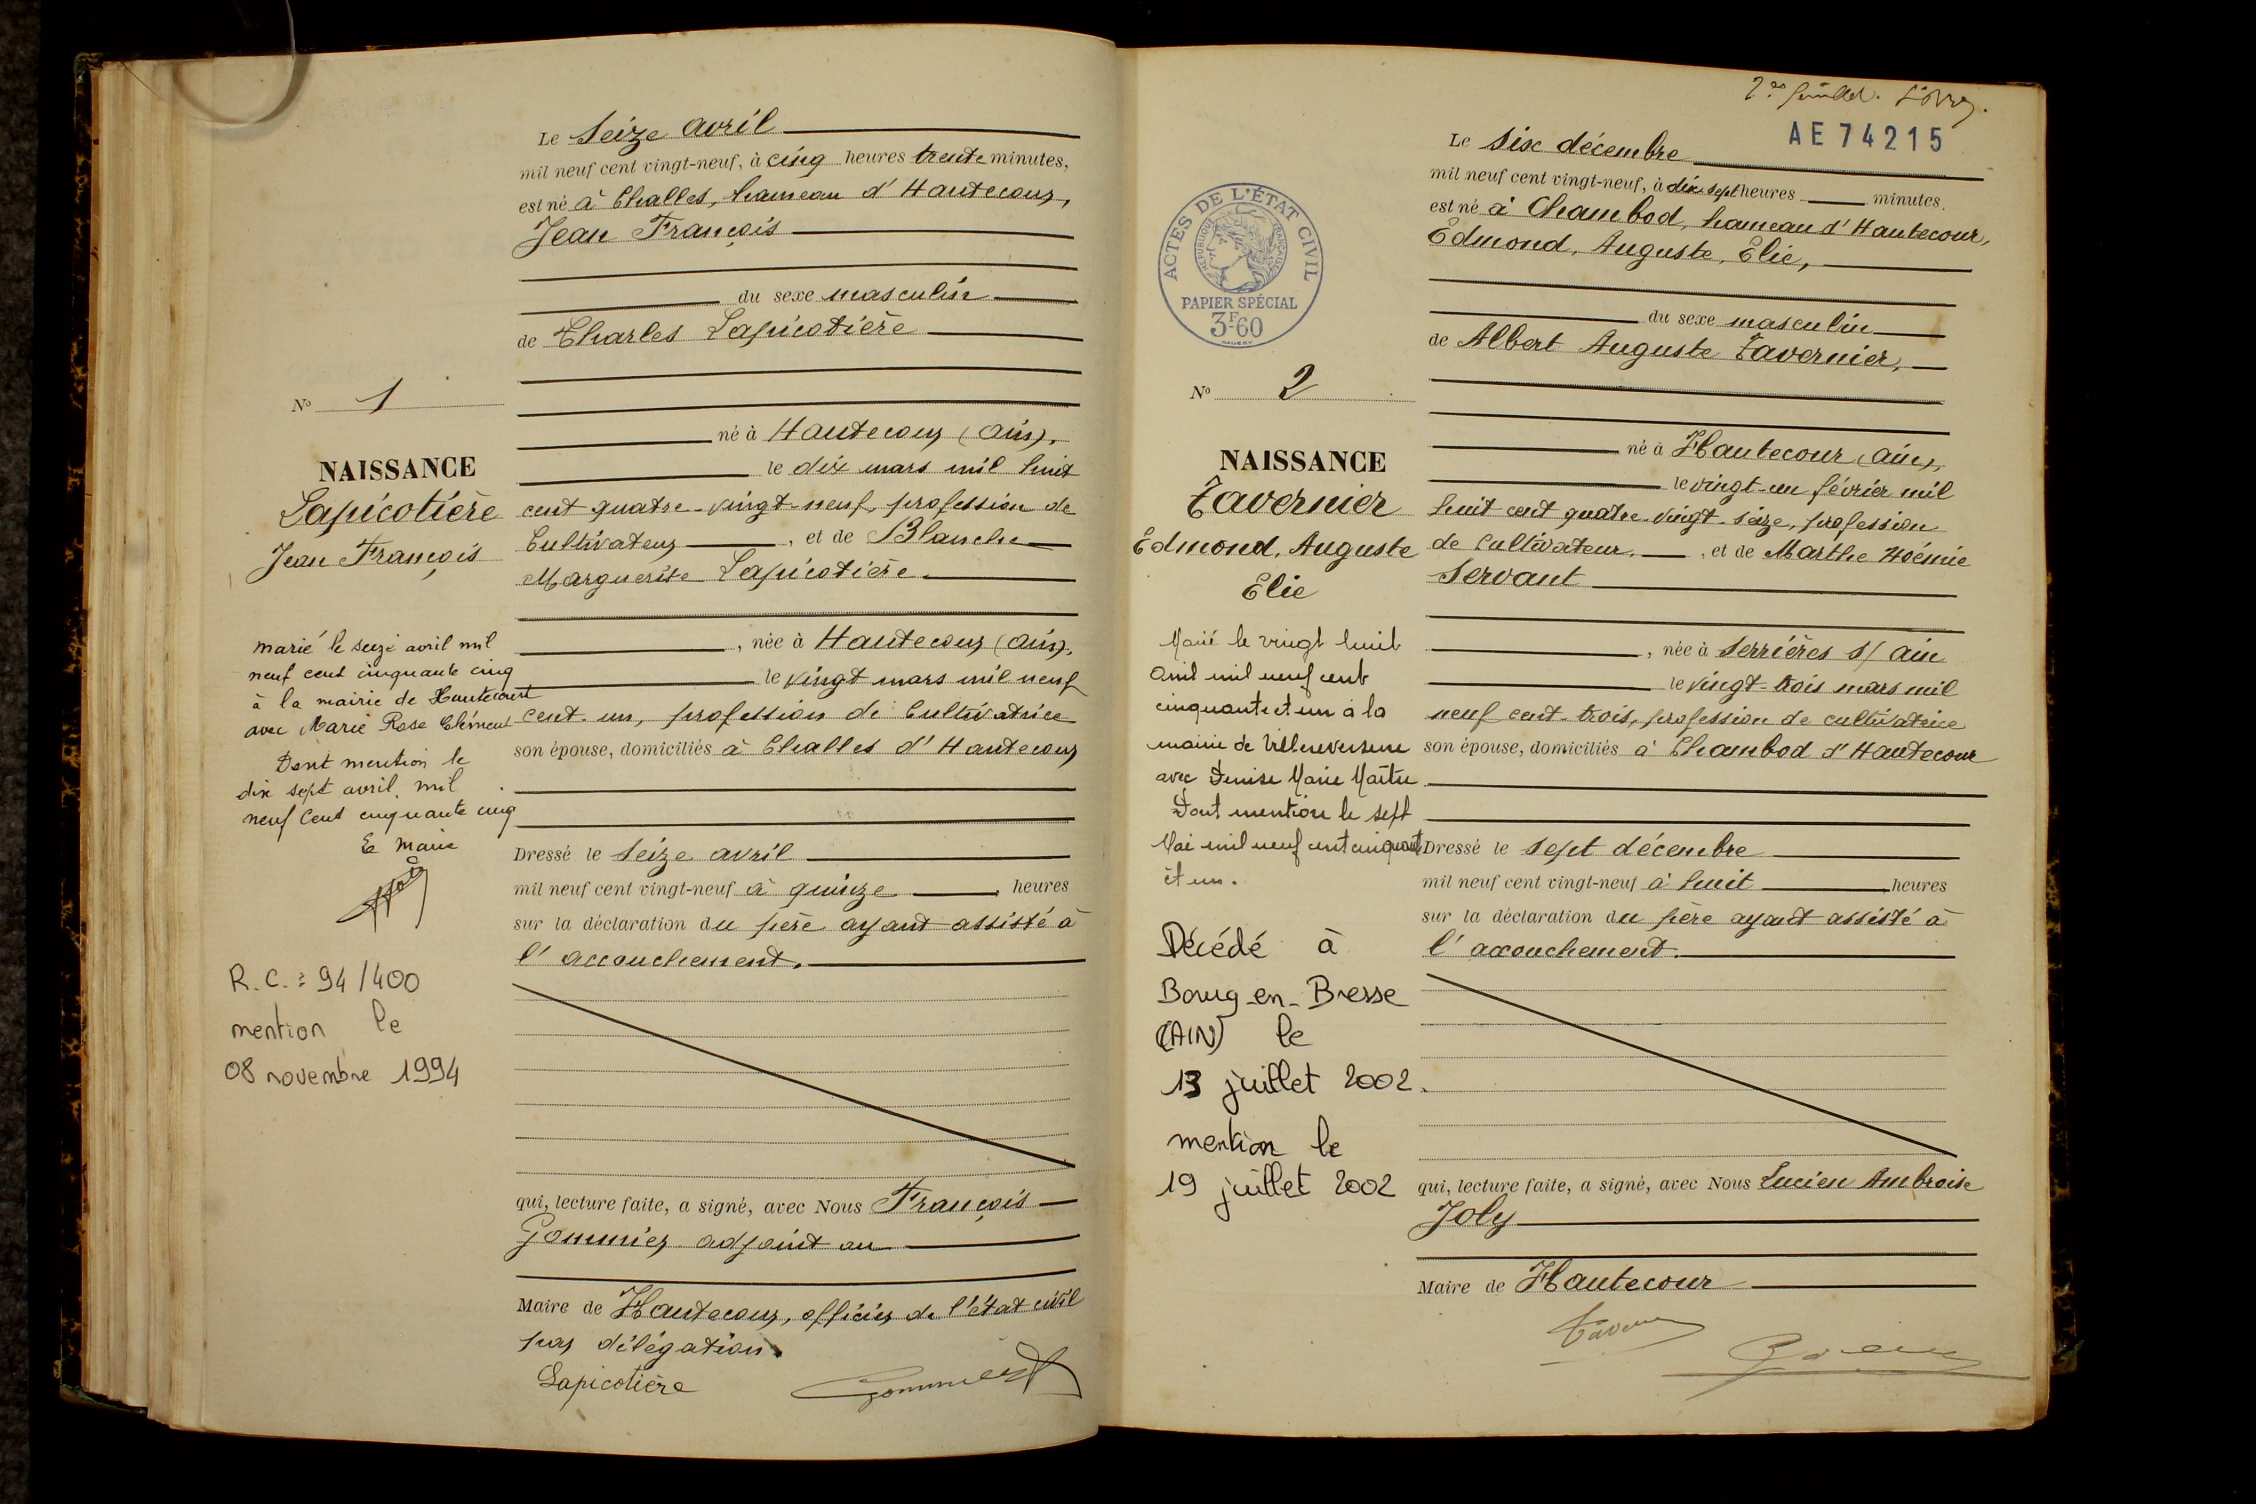 Le Seize avril
mil neuf cent vingt-neuf, à cinq heures trente minutes,
est né à Challes, hameau d'Hautecour,
Jean François
du sexe masculin
de Charles Lapicotière
né à Hautecour (Ain),
le dix mars mil huit
cent quatre-vingt-neuf, profession de
Cultivateur, et de Blanche
Marguerite Lapicotière
, née à Hautecour (Ain),
le vingt mars mil neuf
cent un, profession de Cultivatrice
son épouse, domiciliés à Challes d'Hautecour
Dressé le Seize avril
mil neuf cent vingt-neuf à quinze heures
sur la déclaration du père ayant assisté à
l'accouchement.
qui, lecture faite, a signé, avec Nous François
Gommier adjoint au
Maire de Hautecour, officier de l'état civil
par délégation.
Lapicotière
Gommier
No 1
NAISSANCE
Lapicotière
Jean François
marié le seize avril mil
neuf cent cinquante cinq
à la mairie de Hautecourt
avec Marie Rose Clément
Dont mention le
dix sept avril mil
neuf cent cinquante cinq
Le Maire
R.C. : 94/400
mention le
08 novembre 1994
AE 74215
Le Six décembre
mil neuf cent vingt-neuf, à dix-sept heures minutes.
est né à Chambod, hameau d'Hautecour,
Edmond, Auguste, Elie,
du sexe masculin
de Albert Auguste Tavernier,
né à Hautecour (Ain),
le vingt-un février mil
huit cent quatre-vingt-seize, profession
de Cultivateur, et de Marthe Noémie
Servant
, née à Serrières s/ Ain
le vingt-trois mars mil
neuf cent trois, profession de cultivatrice
son épouse, domiciliés à Chambod d'Hautecour
Dressé le sept décembre
mil neuf cent vingt-neuf à huit heures
sur la déclaration du père ayant assisté à
l'accouchement.
qui, lecture faite, a signé, avec Nous Lucien Ambroise
Joly
Maire de Hautecour
ACTES DE L'ÉTAT CIVIL
RÉPUBLIQUE FRANÇAISE
PAPIER SPÉCIAL
3F60
No 2
NAISSANCE
Tavernier
Edmond, Auguste
Elie
Marié le vingt huit
Avril mil neuf cent
cinquante et un à la
mairie de Villereversure
avec Denise Marie Maître
Dont mention le sept
Mai mil neuf cent cinquante
et un.
Décédé à
Bourg-en-Bresse
(AIN) le
13 juillet 2002.
mention le
19 juillet 2002